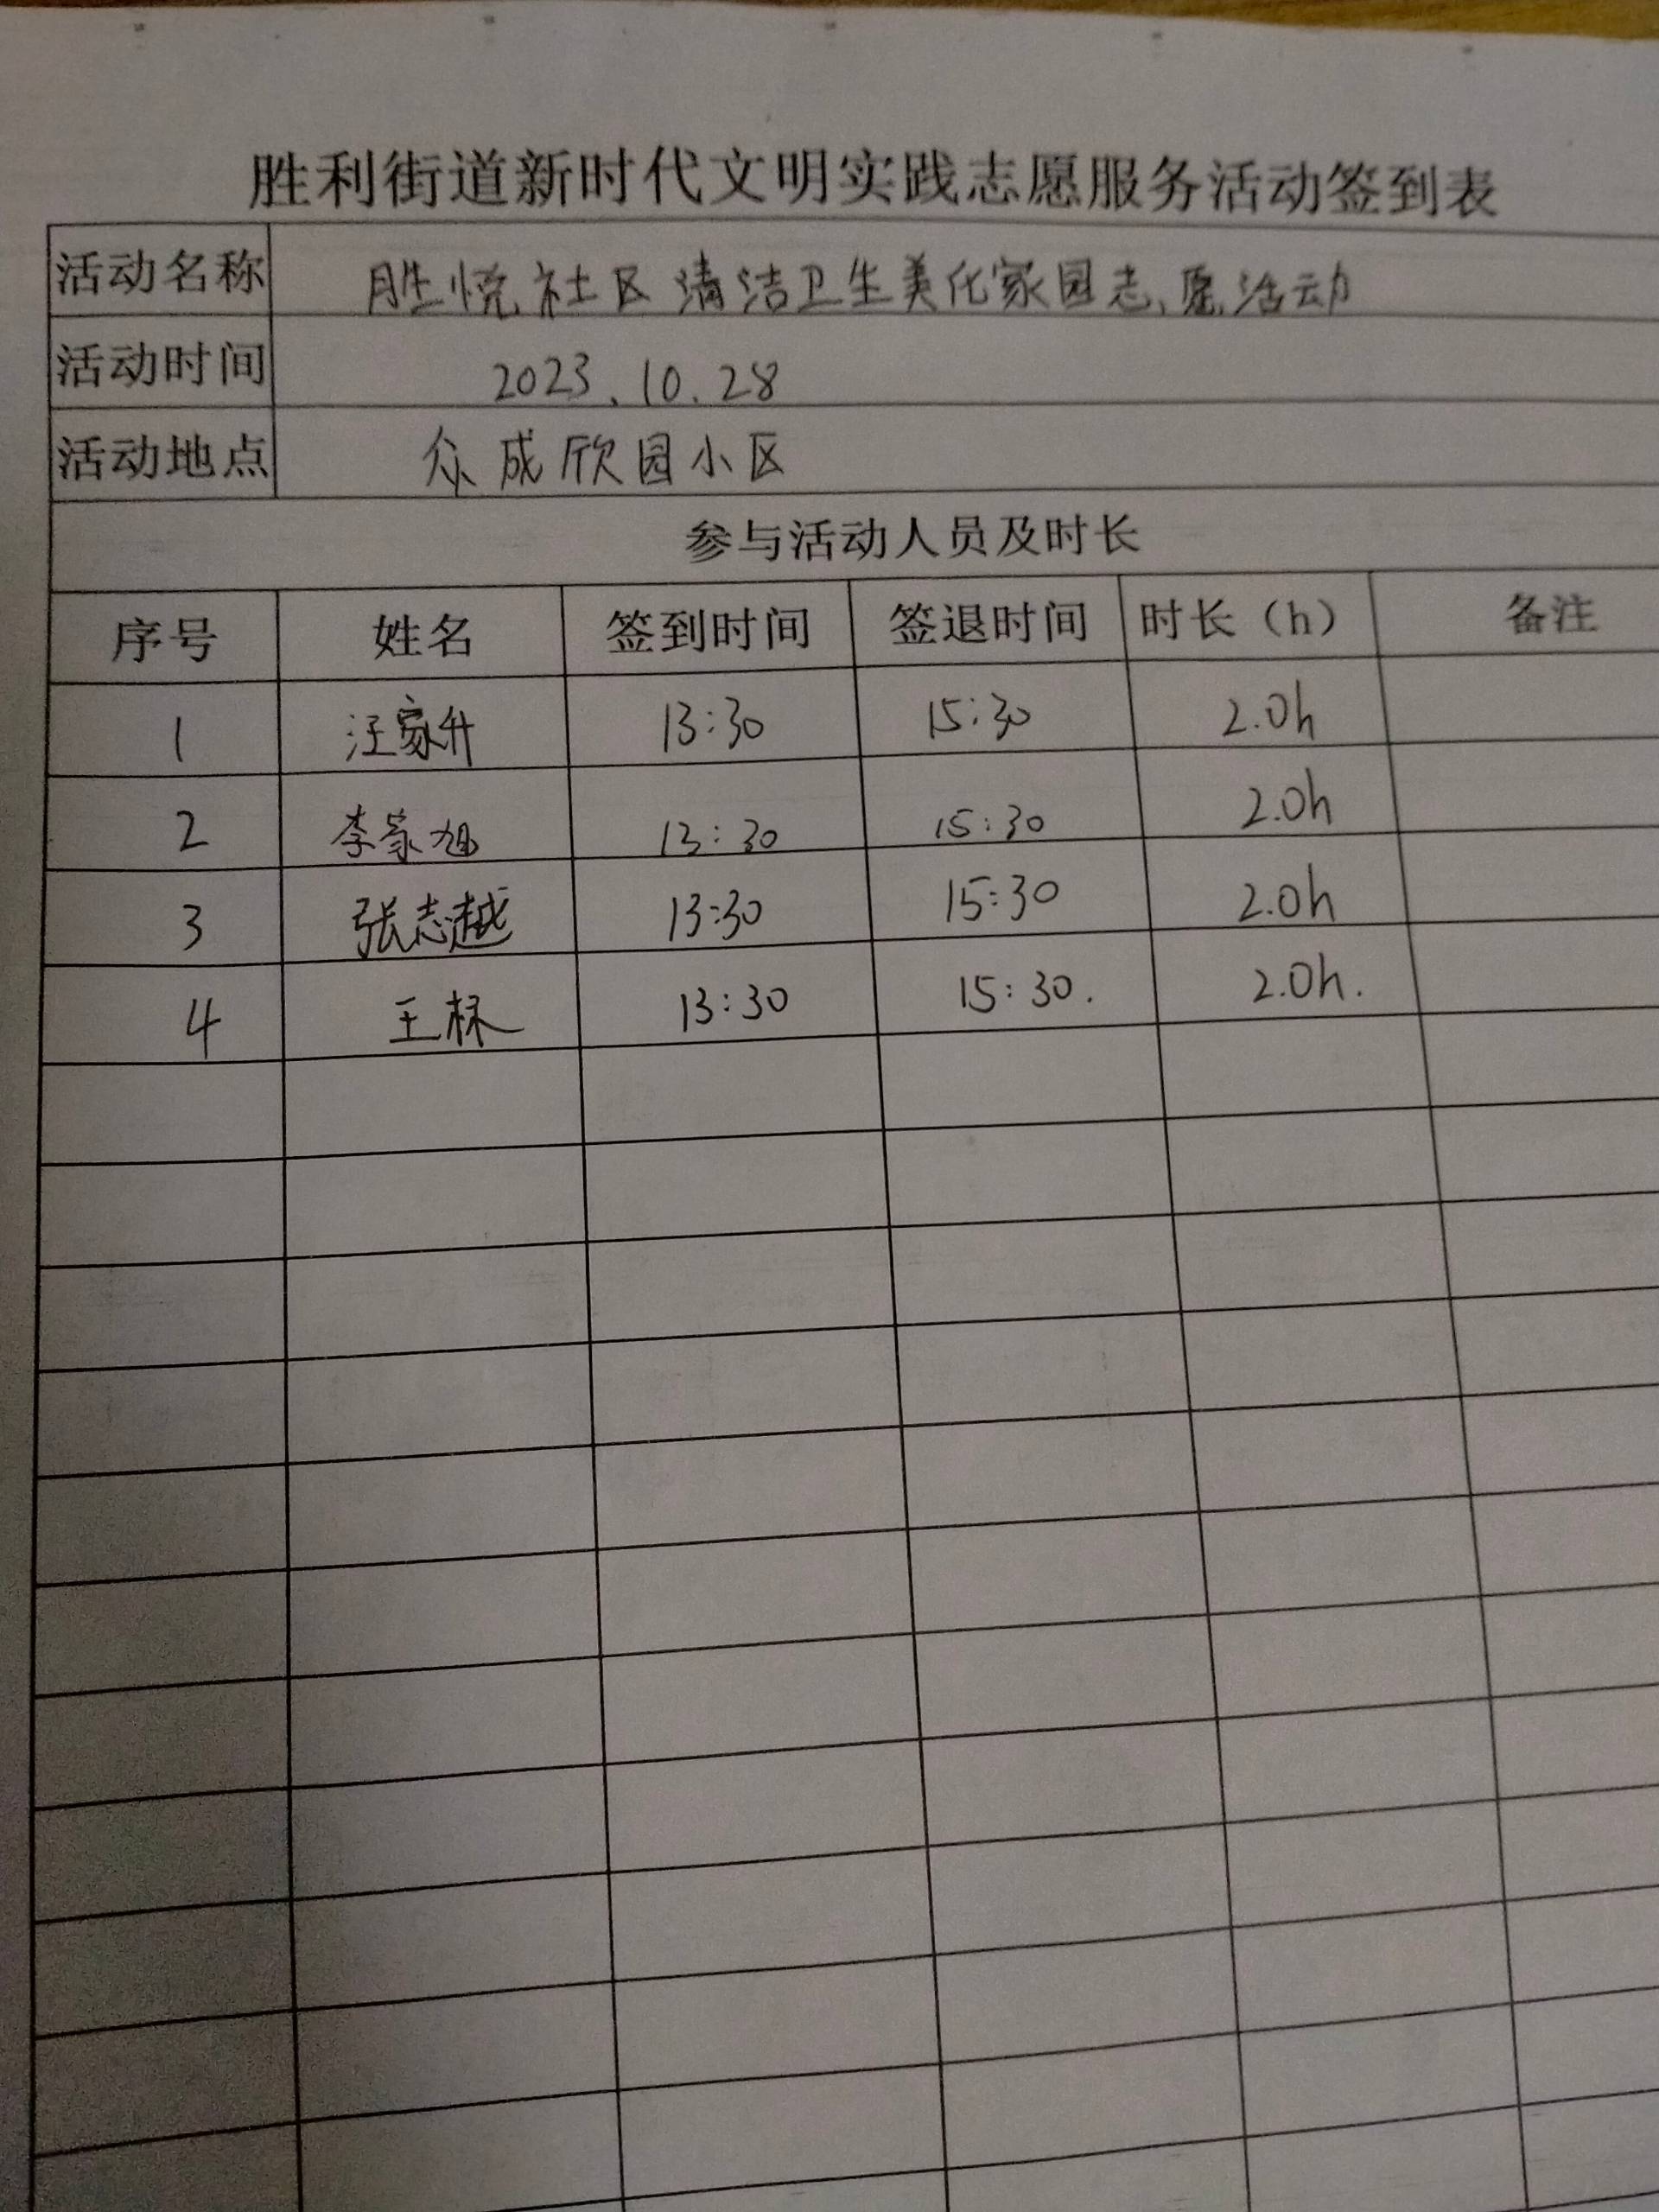 胜利街道新时代文明实践志愿服务活动签到表
活动名称 胜悦社区清洁卫生美化家园志愿活动
活动时间 2023.10.28
活动地点 众成欣园小区
参与活动人员及时长
序号 姓名 签到时间 签退时间 时长（h） 备注
1 汪家升 13:30 15:30 2.0h
2 李家旭 13:30 15:30 2.0h
3 张志越 13:30 15:30 2.0h
4 王林 13:30 15:30. 2.0h.